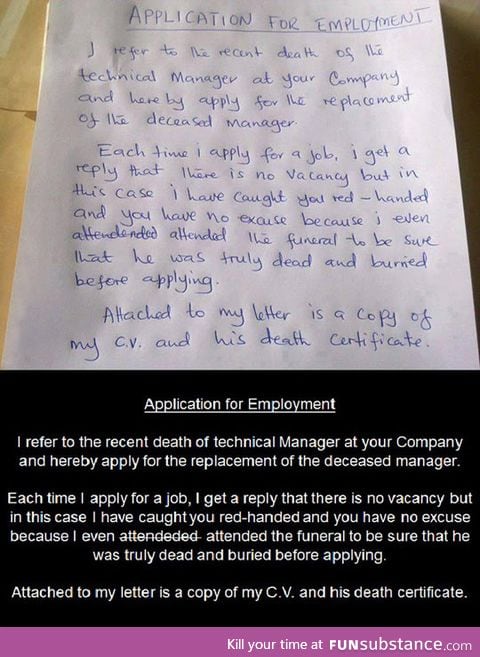 APPLICATION FOR EMPLOYMENT
I refer to the recent death of the
technical Manager at your Company
and hereby apply for the replacement
of the deceased manager.
Each time i apply for a job, i get a
reply that there is no vacancy but in
this case i have caught you red-handed
and you have no excuse because i even
attendended attended the funeral to be sure
that he was truly dead and burried
before applying.
Attached to my letter is a copy of
my C.V. and his death certificate.
Application for Employment
I refer to the recent death of technical Manager at your Company
and hereby apply for the replacement of the deceased manager.
Each time I apply for a job, I get a reply that there is no vacancy but
in this case I have caught you red-handed and you have no excuse
because I even attendeded attended the funeral to be sure that he
was truly dead and buried before applying.
Attached to my letter is a copy of my C.V. and his death certificate.
Kill your time at FUNsubstance.com